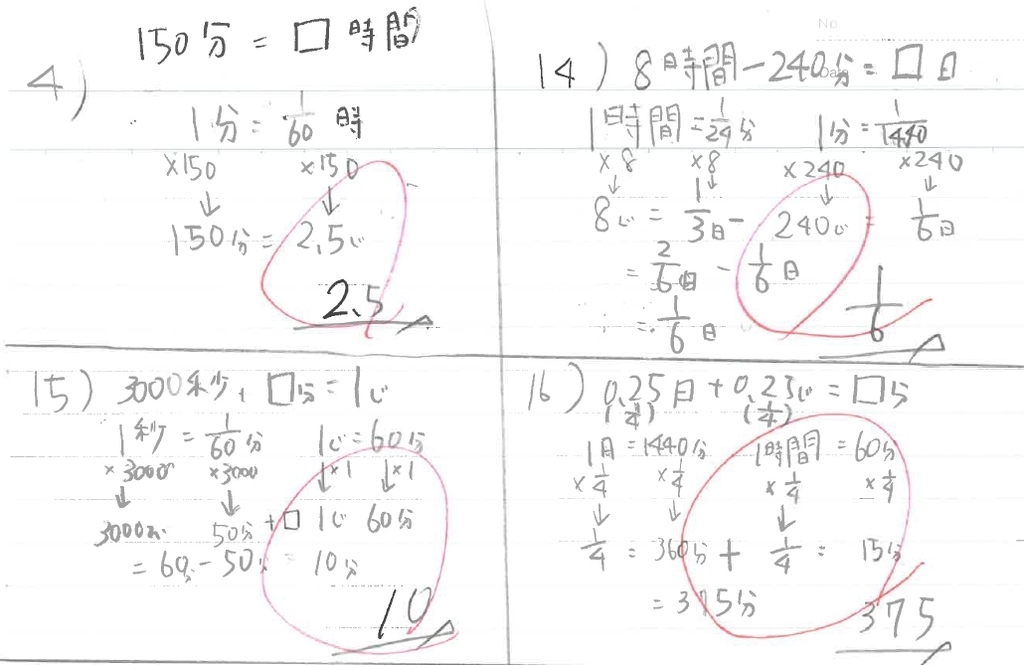 150分 = □ 時間
4)
1分 = 1/60 時
×150 ×150
↓ ↓
150分 = 2.5い
2.5
No.
Date
14) 8時間-240分 = □日
1時間 = 1/24分 1分 = 1/1440
×8 ×8 ×240 ×240
↓ ↓ ↓ ↓
8い = 1/3日 - 240い = 1/6日
= 2/6日 - 1/6日
= 1/6日
1/6
15) 3000秒 + □分 = 1い
1秒 = 1/60分 1い = 60分
×3000 ×3000 ↓×1 ↓×1
↓ ↓
3000 50分 + □ 1い 60分
= 60分 - 50分 = 10分
10
16) 0.25日 + 0.25い = □分
(1/4) (1/4)
1日 = 1440分 1時間 = 60分
×1/4 ×1/4 ×1/4 ×1/4
↓ ↓ ↓
1/4 = 360分 + 1/4 = 15分
= 375分
375